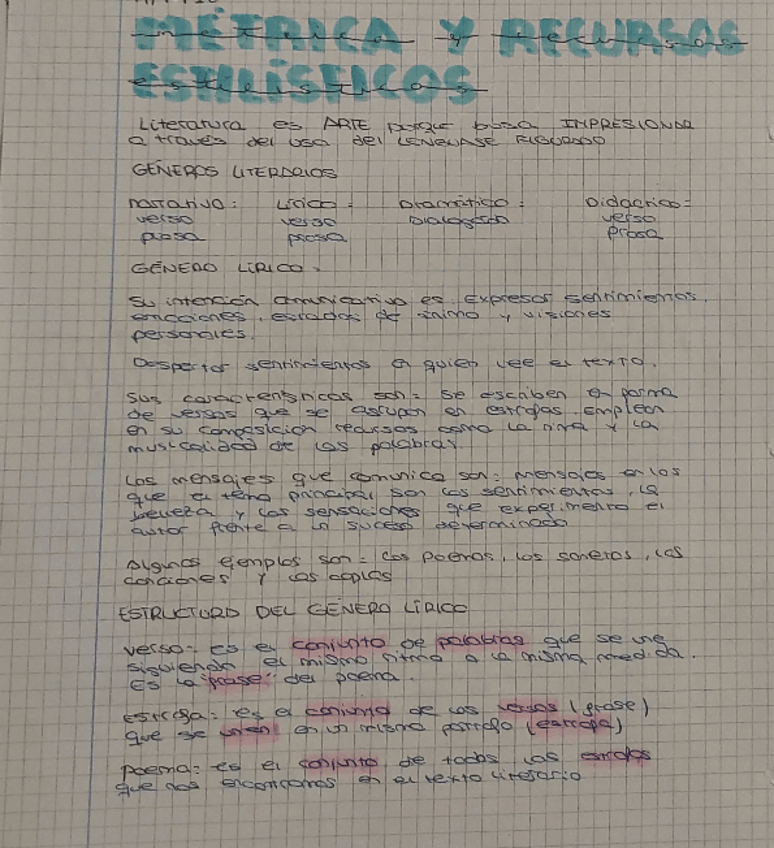 MÉTRICA Y RECURSOS
ESTILÍSTICOS
Literatura es ARTE porque busca IMPRESIONAR
a través del uso del LENGUAJE FIGURADO
GÉNEROS LITERARIOS
narrativo: Lírico: Dramático: Didáctico:
verso verso Dialogado verso
prosa prosa Prosa
GÉNERO LÍRICO.
Su intención comunicativa es expresar sentimientos,
emociones, estados de ánimo y visiones
personales.
Despertar sentimientos en quien lee el texto.
Sus características son: se escriben en forma
de versos que se agrupan en estrofas, emplean
en su composición recursos como la rima y la
musicalidad de las palabras.
Los mensajes que comunica son: mensajes en los
que el tema principal son los sentimientos, la
belleza y las sensaciones que experimenta el
autor frente a un suceso determinado
Algunos ejemplos son: los poemas, los sonetos, las
canciones y las coplas
ESTRUCTURA DEL GÉNERO LÍRICO
verso: es el conjunto de palabras que se une
siguiendo el mismo ritmo o la misma medida.
Es la "frase" del poema.
Estrofa: es el conjunto de los versos (frase)
que se unen en un mismo párrafo (estrofa)
poema: es el conjunto de todas las
que nos encontramos en el texto literario